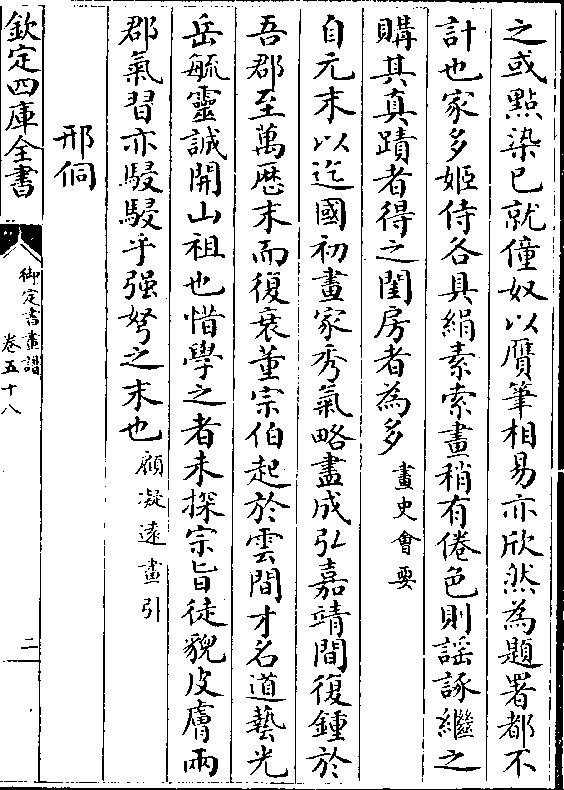 之或㸃染已就僮奴以贋筆相易亦欣然為題署都不
計也家多姬侍各具絹素索畫稍有倦色則謡諑繼之
購其真蹟者得之閨房者為多畫史會要
自元末以迄國初畫家秀氣略盡成弘嘉靖間復鍾於
吾郡至萬厯末而復衰董宗伯起於雲間才名道藝光
岳毓靈誠開山祖也惜學之者未探宗旨徒貌皮膚兩
郡氣習亦駸駸乎强弩之末也顧凝逺畫引
邢侗
欽定四庫全書
御定書畫譜
卷五十八
二